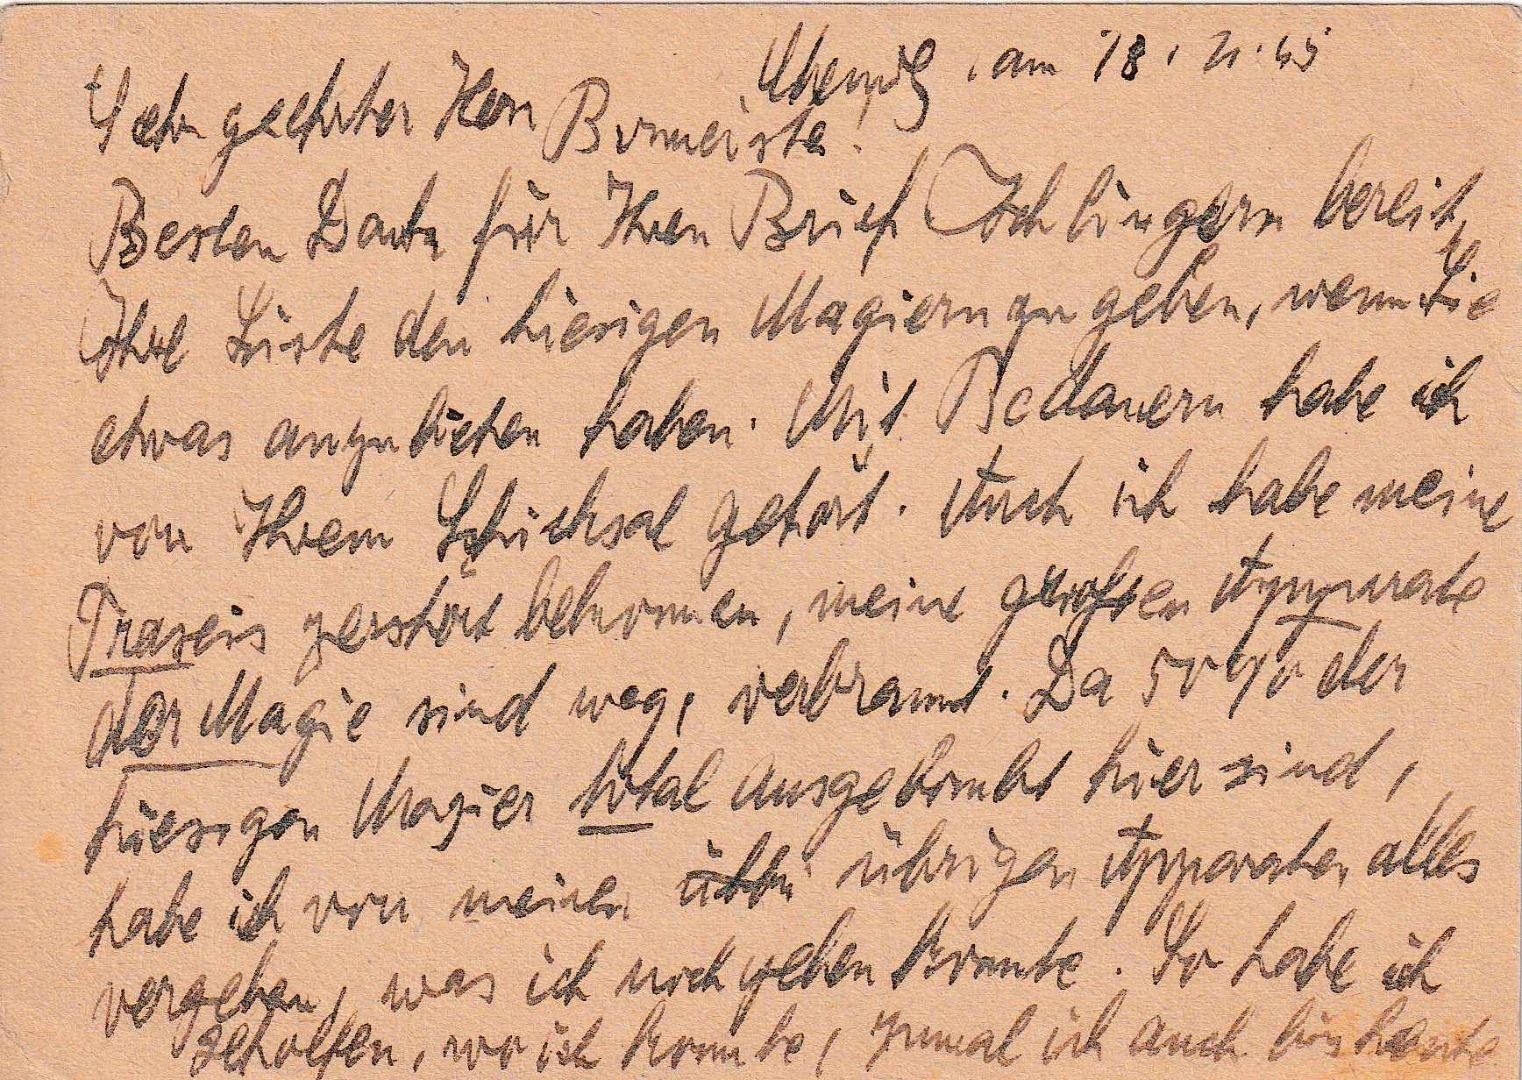 Chemnitz, am 18.11.45
Sehr geehrter Herr Burmeister!
Besten Dank für Ihren Brief Ich bin gern bereit,
Ihre Liste den hiesigen Magiern zu geben, wenn Sie
etwas anzubieten haben. Mit Bedauern habe ich
von Ihrem Schicksal gehört. Auch ich habe meine
zerstört bekommen, meine großen Apparate
der Magie sind weg, verbrannt. Da 50 % der
hiesigen Magier total ausgebombt hier sind,
habe ich von meinen übrigen Apparaten alles
vergeben, was ich noch geben konnte. So habe ich
geholfen, wo ich konnte, zumal ich auch bis heute